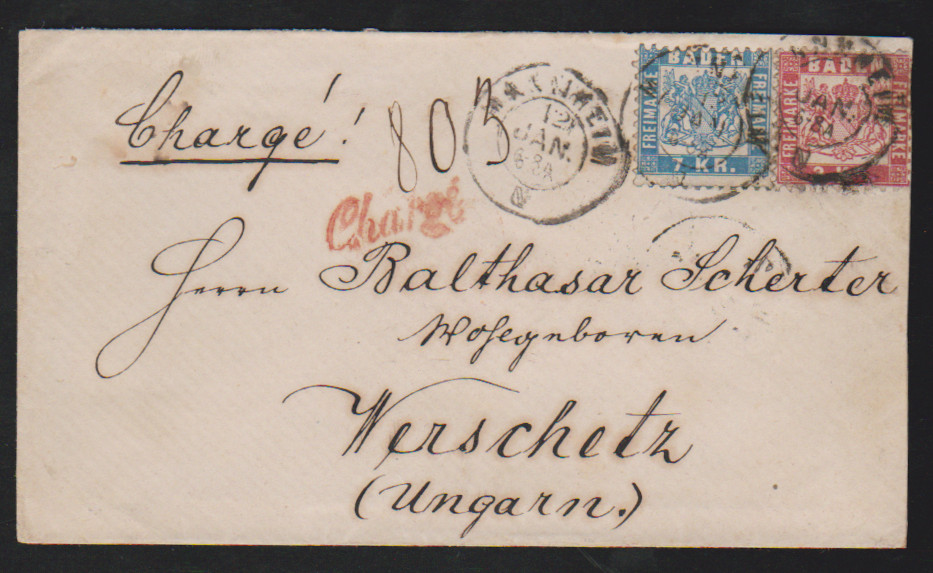 Chargé! 803
MANNHEIM
12
JAN.
6-8A
N
BADEN
FREIMARKE
FREIMARKE
7 KR.
BADEN
FREIMARKE
FREIMARKE
JAN.
Chargé
Herrn Balthasar Scherter
Wohlgeboren
Werschetz
(Ungarn.)